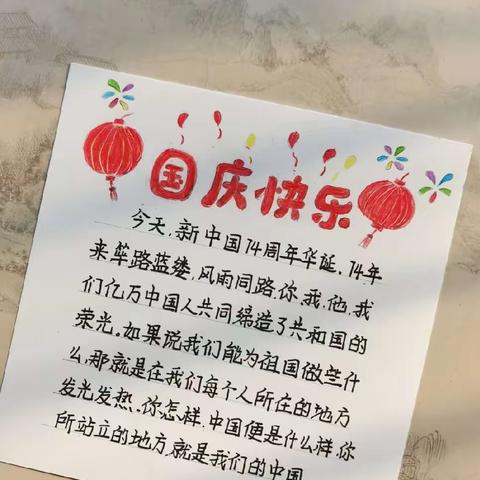 国庆快乐
今天,新中国74周年华诞、74年
来筚路蓝缕,风雨同路.你、我、他,我
们亿万中国人共同缔造了共和国的
荣光。如果说我们能为祖国做些什
么,那就是在我们每个人所在的地方
发光发热、你怎样.中国便是什么样.你
所站立的地方就是我们的中国